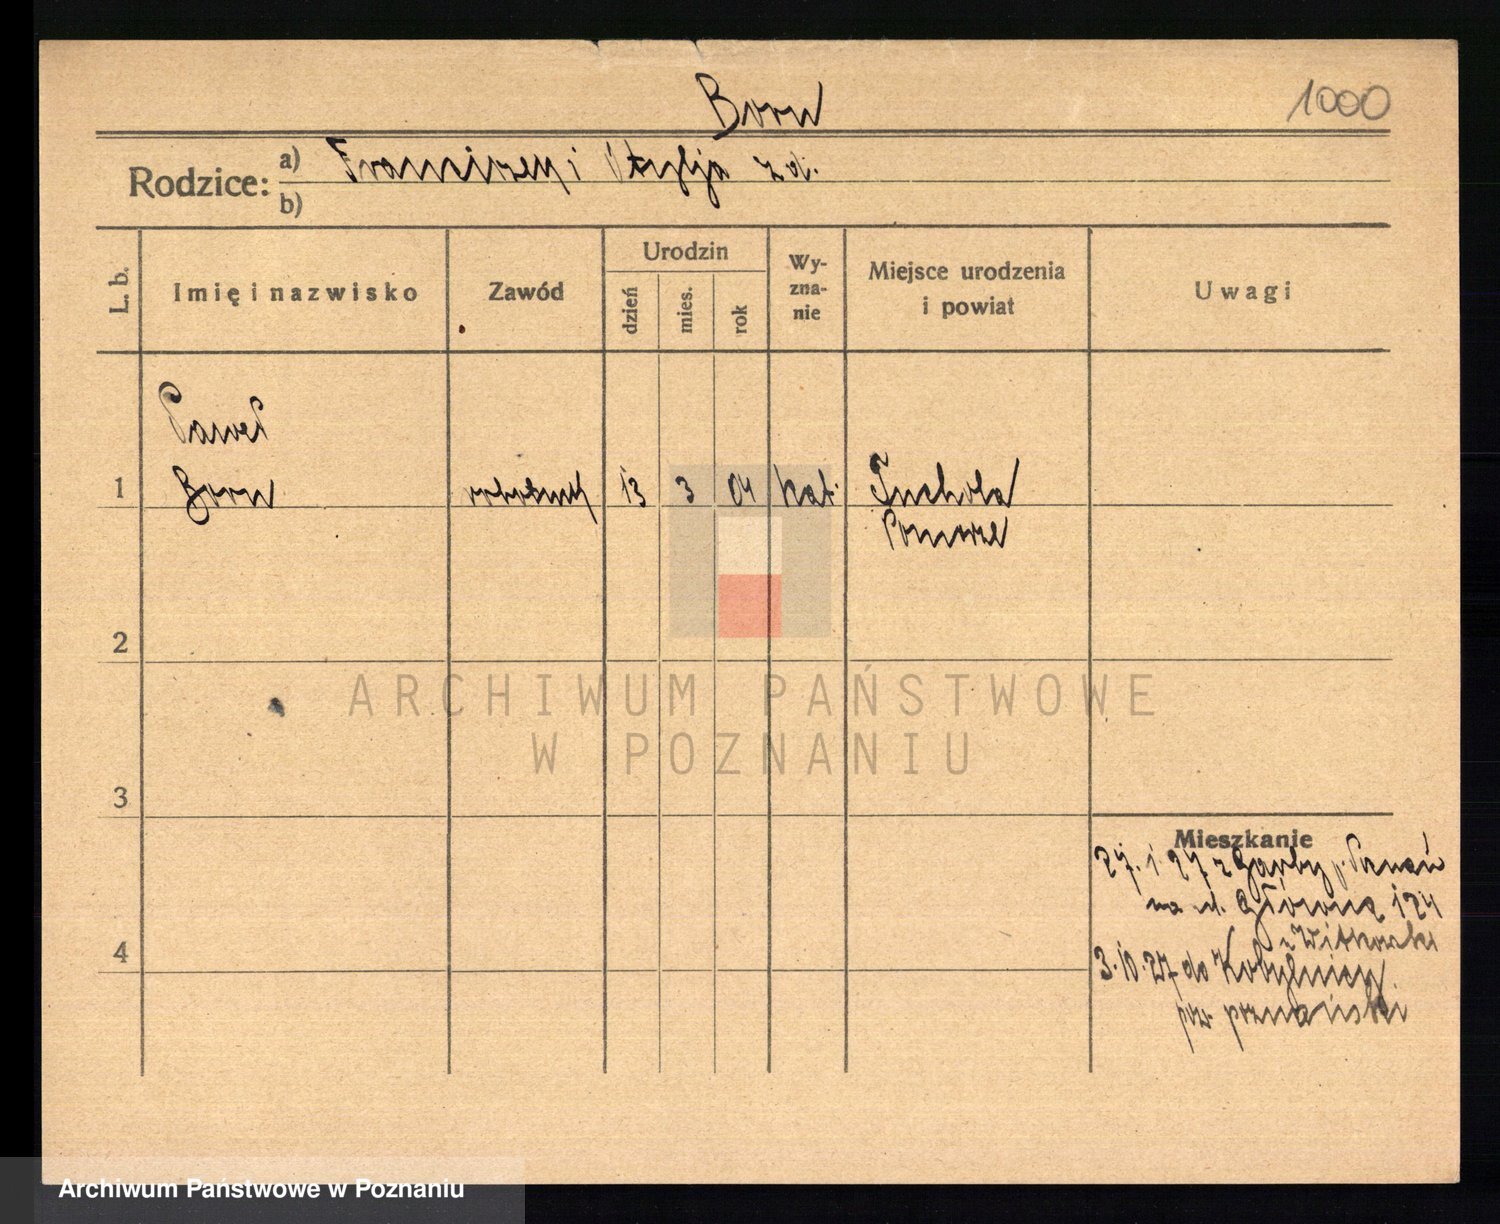 Born
1000
Rodzice: a) Franciszek i Otylja z d.
b)
L. b.
Imię i nazwisko
Zawód
Urodzin
dzień
mies.
rok
Wy-
zna-
nie
Miejsce urodzenia
i powiat
Uwagi
Paweł
1 Born robotnik 13 3 04 kat. Tuchola
Pomorze
2
ARCHIWUM PAŃSTWOWE
W POZNANIU
3
Mieszkanie
27. 1 27 z Garby p. Poznań
na ul. Główna 124
u Witkowski
4
3.10.27 do Kobylnicy
pow. poznański
Archiwum Państwowe w Poznaniu